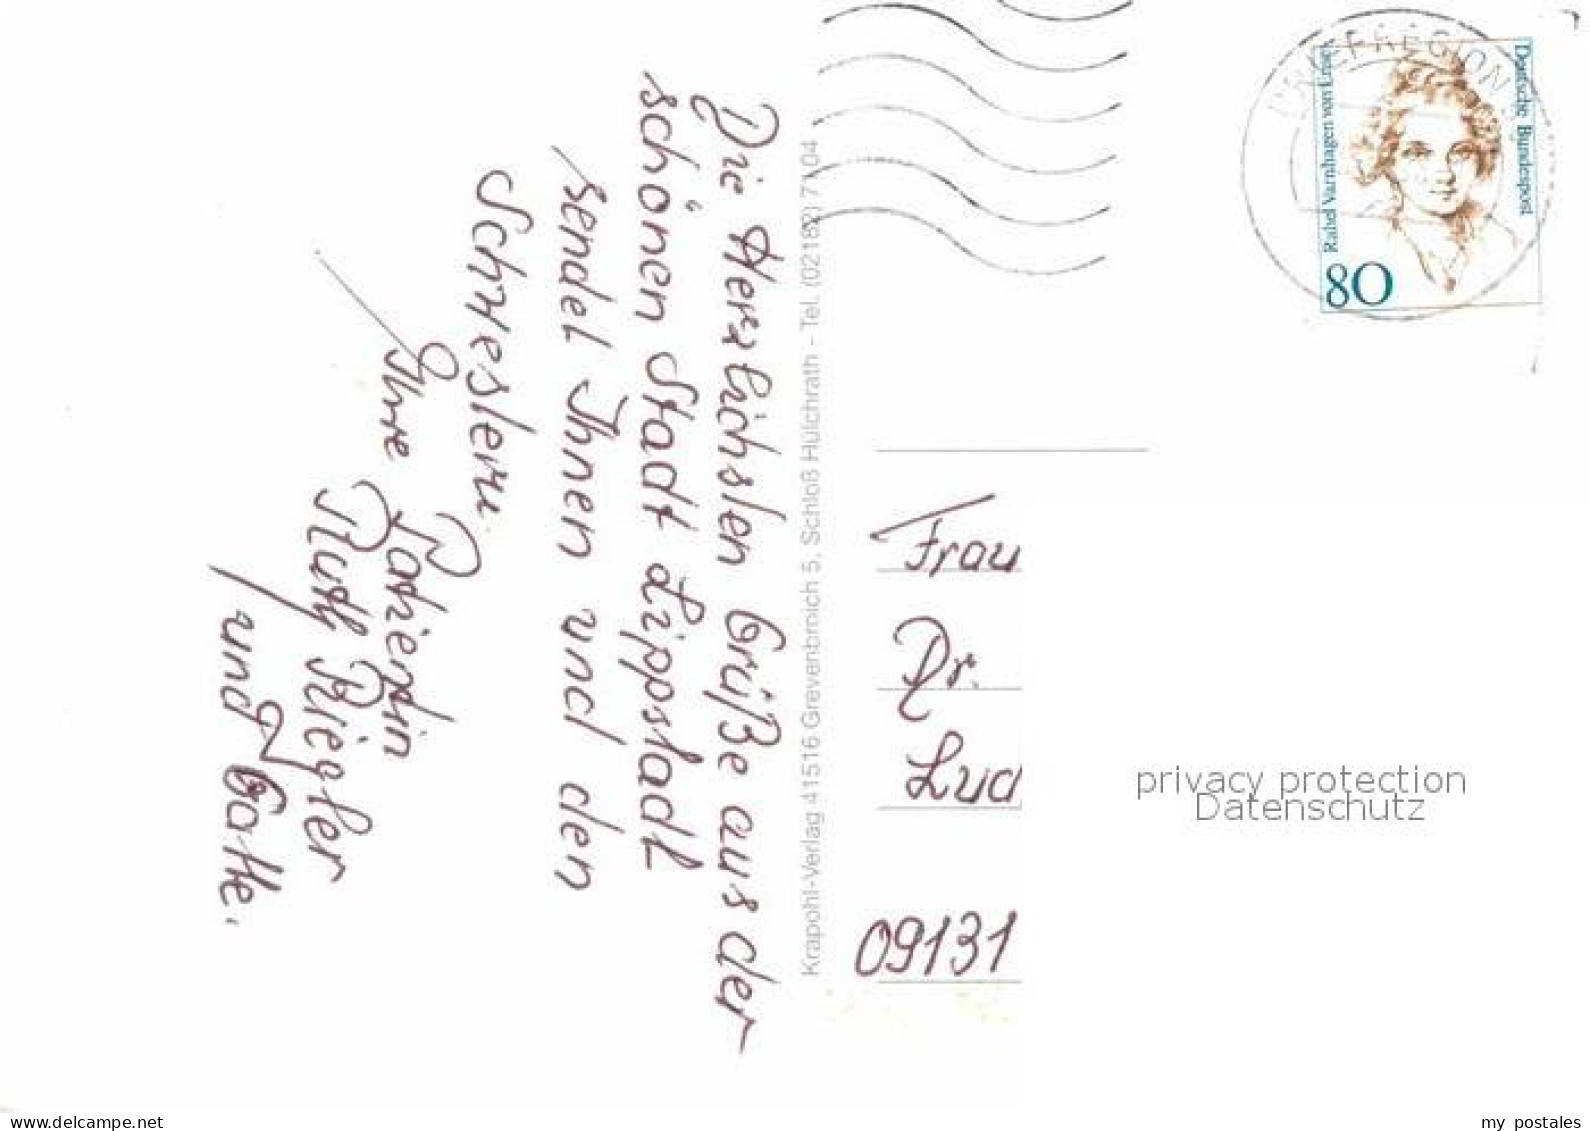 Die Herzlichsten Grüße aus der
schönen Stadt Lippstadt
sendet Ihnen und den
Schwestern
Ihre Patientin
Ruth Riegler
und Gatte.
Krapohl-Verlag 41516 Grevenbroich 5, Schloß Hülchrath - Tel. (02182) 71 04
BRIEFREGION
Rahel Varnhagen von Ense
Deutsche Bundespost
80
Frau
Dr.
Lud
09131
privacy protection
Datenschutz
www.delcampe.net
my postales